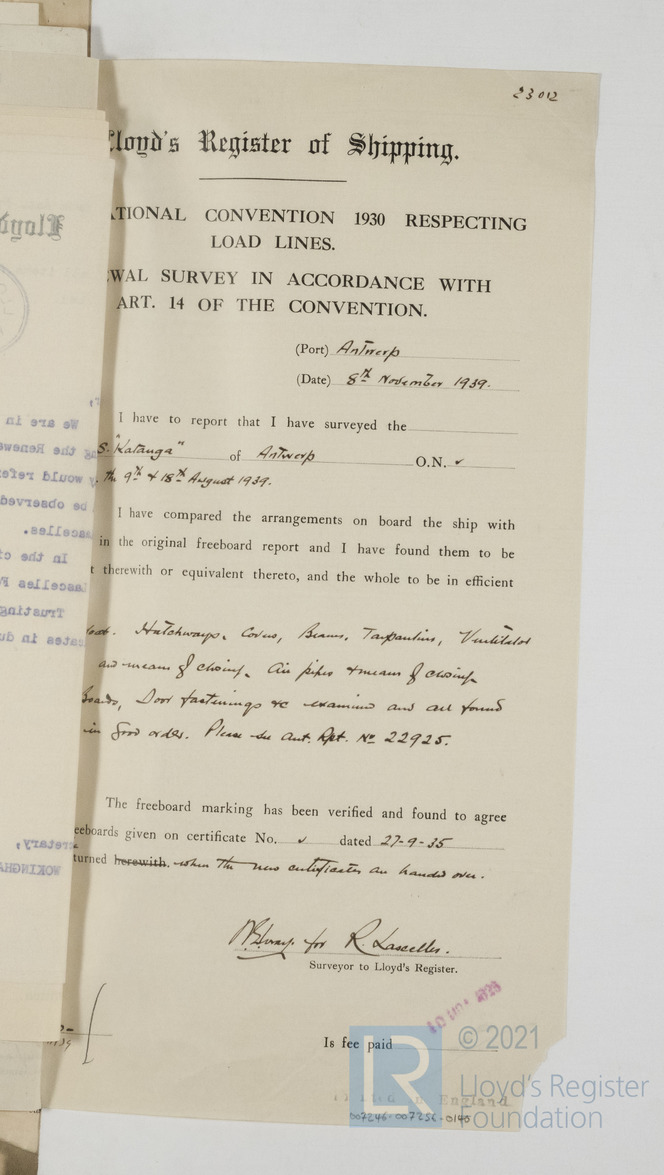 23012
Lloyd's Register of Shipping.
ATIONAL CONVENTION 1930 RESPECTING
LOAD LINES.
WAL SURVEY IN ACCORDANCE WITH
ART. 14 OF THE CONVENTION.
(Port) Antwerp
(Date) 8th November 1939.
I have to report that I have surveyed the
S. "Katanga" of Antwerp O.N. ✓
the 9th & 18th August 1939.
I have compared the arrangements on board the ship with
in the original freeboard report and I have found them to be
t therewith or equivalent thereto, and the whole to be in efficient
Hatchways, Covers, Beams, Tarpaulins, Ventilator
and means of closing. Air pipes & means of closing.
Boards, Door fastenings &c examined and all found
in good order. Please see Ant. Rpt. No 22925.
The freeboard marking has been verified and found to agree
eeboards given on certificate No. ✓ dated 27-9-35
turned herewith. when the new certificates are handed over.
for R. Lascelles.
Surveyor to Lloyd's Register.
Is fee paid
© 2021
LR
Lloyd's Register
Foundation
in England
007246-007256-0140
We are in
the Renewe
would refe
be observed
ascelles.
In the c
ascelles F
Trusting
cates in du
retary,
WOKINGHA